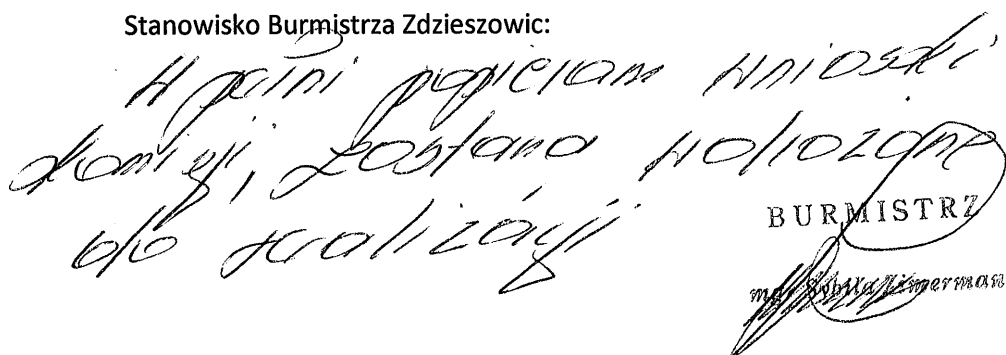 Stanowisko Burmistrza Zdzieszowic:
W pełni popieram wnioski
Komisji, zostaną wdrożone
do realizacji
BURMISTRZ
mgr Sybilla Zimerman